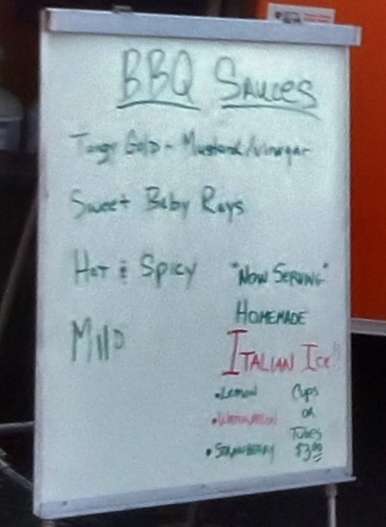 BBQ SAUCES
Tangy Gold - Mustard/vinegar
Sweet Baby Rays
Hot & Spicy
Mild
"Now Serving"
Homemade
Italian Ice!!
•Lemon Cups
•Watermelon or
Tubes
•Strawberry $3.00